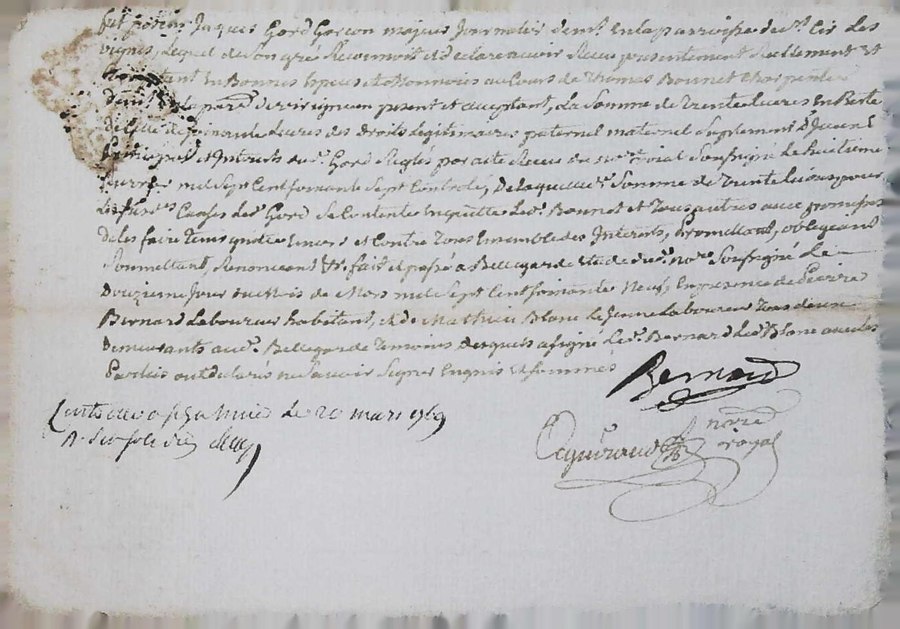 fut présent Jaques Gord Garcon majeur Journalier dem.t En la parroisse de S.t Cir Les
vignes, Lequel de Son gré Reconnoit et declare avoir Recu presentement Reellement Et
Comptant En Bonnes Especes et Monnoies au Cours de Thomas Bonnet Charpentier
dem.t la par.se de virignieu present et acceptant, La Somme de Trente Livres En Reste
de Celle de Soixante Livres des droits Legitimaires paternel maternel Suplement D'Iceux
Principal et Interets dud.t Gord Reglés par acte Recu du no.re Roial Soussigné Le huitieme
mil Sept Cent Soixante Sept Controlé, De laquelle d.e Somme de Trente Livres pour
Les Causes Led.t Gord Se Contente En quitte Led.t Bonnet et Tous autres avec promesse
de les faire Tenir quitte Envers et Contre Tous Ensemble des Interets, Promettant, obligeant
Soumettant, Renoncant &.a fait et passé à Bellegarde Etude du d.t no.re Soussigné Le
Douzieme Jour du Mois de Mars mil Sept Cent Soixante Neuf, En presence de Pierre
Bernard Laboureur habitant, et de Mathieu Blanc Le Jeune Laboureur Tous deux
Demeurants aud.t Bellegarde Temoins Desquels a signé Led.t Bernard Led.t Blanc avec les
Parties ont declarés ne Savoir Signer Enquis et Sommés
Bernard
Controlé a Le 20 mars 1769
R. sols
no.re
royal